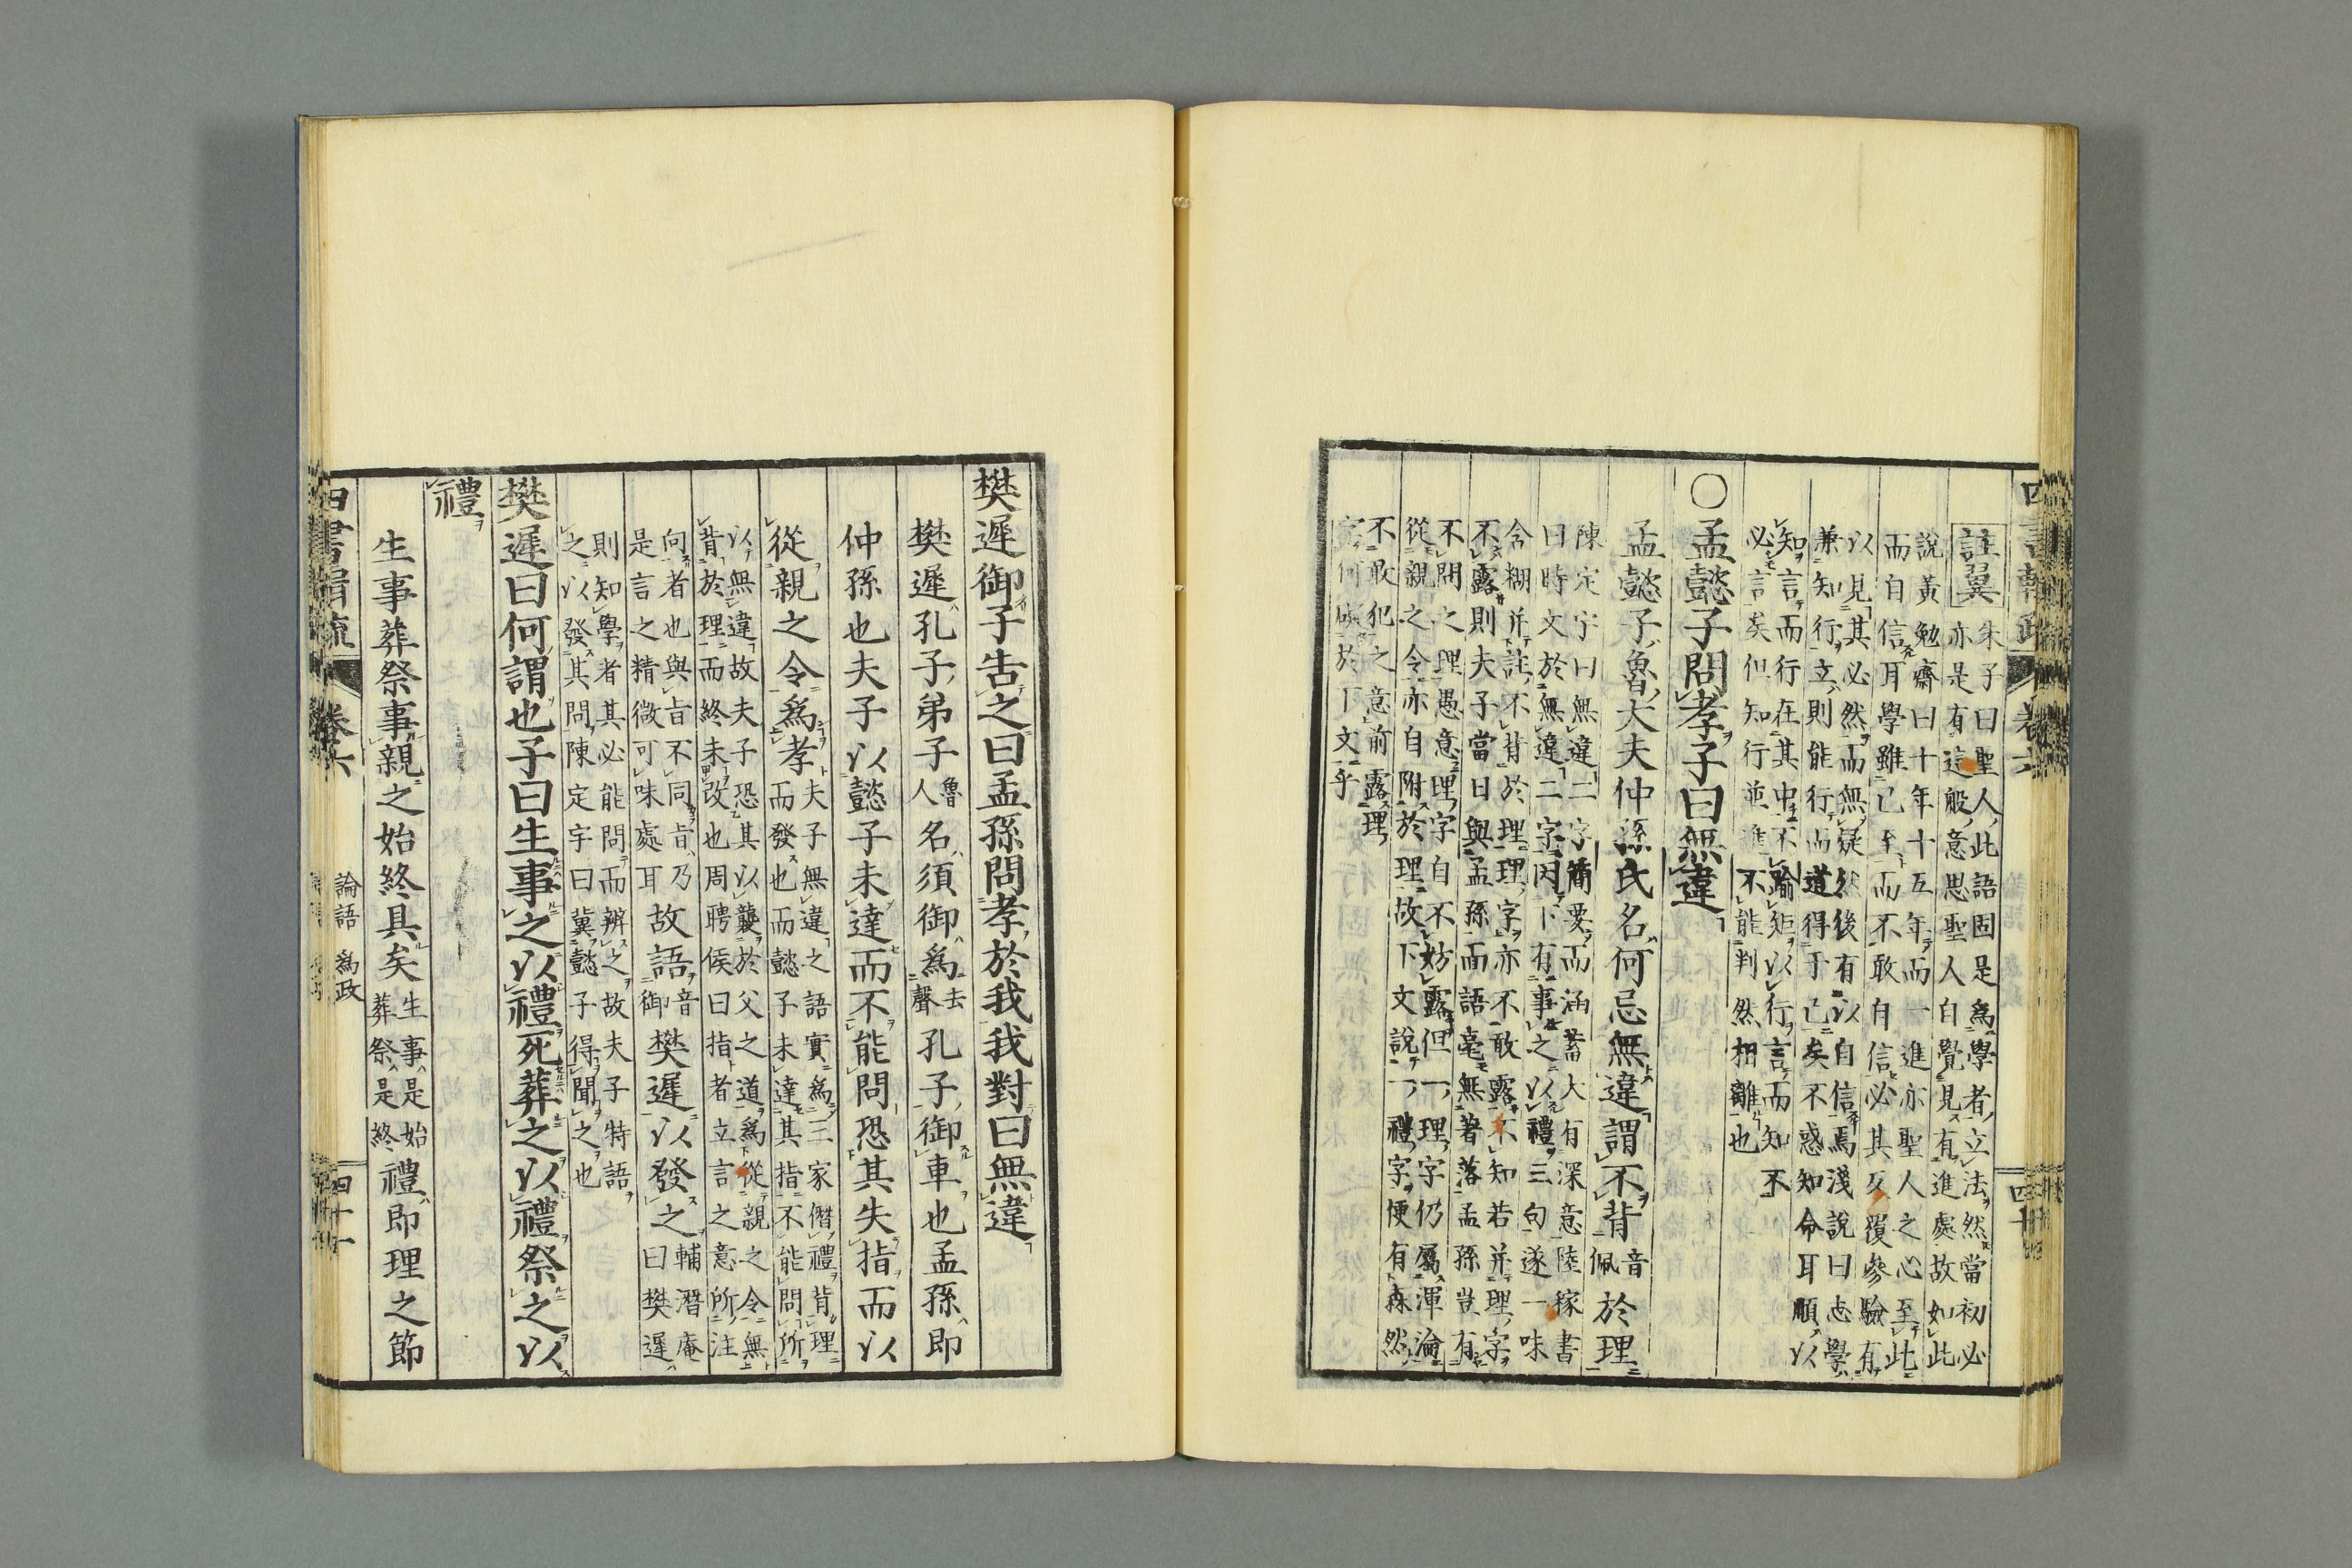 四書輯疏 卷六 四十
註翼 朱子曰聖人此語固是爲學者立法然當初必
亦是有這般意思聖人自覺見有進處故如此
說黃勉齋曰十年十五年而一進亦聖人之心至此
而自信耳學雖已至而不敢自信必其反覆參驗有
以見其必然而無疑然後有以自信焉淺說曰志學
兼知行立則能行而道得于己矣不惑知命耳順以
知言而行在其中不踰矩以行言而知不
必言矣但知行並進不能判然相離也
○孟懿子問孝子曰無違
孟懿子魯大夫仲孫氏名何忌無違謂不背音佩於理
陳定宇曰無違二字簡要而涵蓄大有深意陸稼書
曰時文於無違二字因下有事之以禮三句遂一味
含糊并註不背於理理字亦不敢露不知若并理字
不露則夫子當日與孟孫而語毫無著落孟孫豈有
不問之理愚意理字自不妨露但一理字仍屬渾淪
從親之令亦自附於理故下文說一禮字便有森然
不敢犯之意前露理
字何碍於下文乎
樊遲御子告之曰孟孫問孝於我我對曰無違
樊遲孔子弟子魯人名須御爲去聲孔子御車也孟孫即
仲孫也夫子以懿子未達而不能問恐其失指而以
從親之令爲孝夫子無違之語實爲三家僭禮背理
而發也而懿子未達其指不能問所
以無違故夫子恐其以襲於父之道爲從親之令無
背於理而終未改也周聘侯曰指者立言之意所注
向者也與旨不同旨乃
是言之精微可味處耳
故語音御樊遲以發之輔潛庵曰樊遲
則知學者其必能問而辨之故夫子特語
之以發其問陳定宇曰冀懿子得聞之也
樊遲曰何謂也子曰生事之以禮死葬之以禮祭之以
禮
生事葬祭事親之始終具矣生事是始葬祭是終禮即理之節
四書輯疏 卷六 論語 爲政 四十一